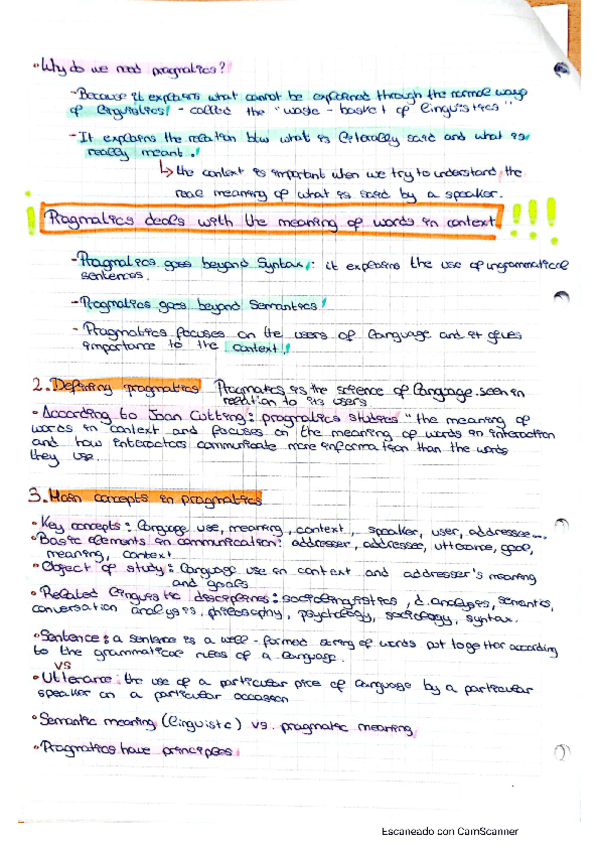 • Why do we need pragmatics?
- Because it explains what cannot be explained through the normal ways
of linguistics! - called the "waste - basket of linguistics"
- It explains the relation btw what is literally said and what is
really meant.!
↳ the context is important when we try to understand the
real meaning of what is said by a speaker.
! Pragmatics deals with the meaning of words in context !!!
- Pragmatics goes beyond Syntax!: it explains the use of ungrammatical
sentences.
- Pragmatics goes beyond Semantics!
- Pragmatics focuses on the users of language and it gives
importance to the context!
2. Defining pragmatics Pragmatics is the science of language seen in
relation to its users
• According to Joan Cutting: pragmatics studies "the meaning of
words in context and focuses on the meaning of words in interaction
and how interactors communicate more information than the words
they use.
3. Main concepts in pragmatics
• Key concepts: language use, meaning, context, speaker, user, addressee...
• Basic elements in communication: addresser, addressee, utterance, goal,
meaning, context
• Object of study: language use in context and addresser's meaning
and goals
• Related linguistic disciplines: sociolinguistics, d. analysis, semantics,
conversation analysis, philosophy, psychology, sociology, syntax.
• Sentence: a sentence is a well-formed string of words put together according
to the grammatical rules of a language.
VS
• Utterance: the use of a particular pice of language by a particular
speaker on a particular occasion
• Semantic meaning (linguistic) vs. pragmatic meaning
• Pragmatics have principles
Escaneado con CamScanner